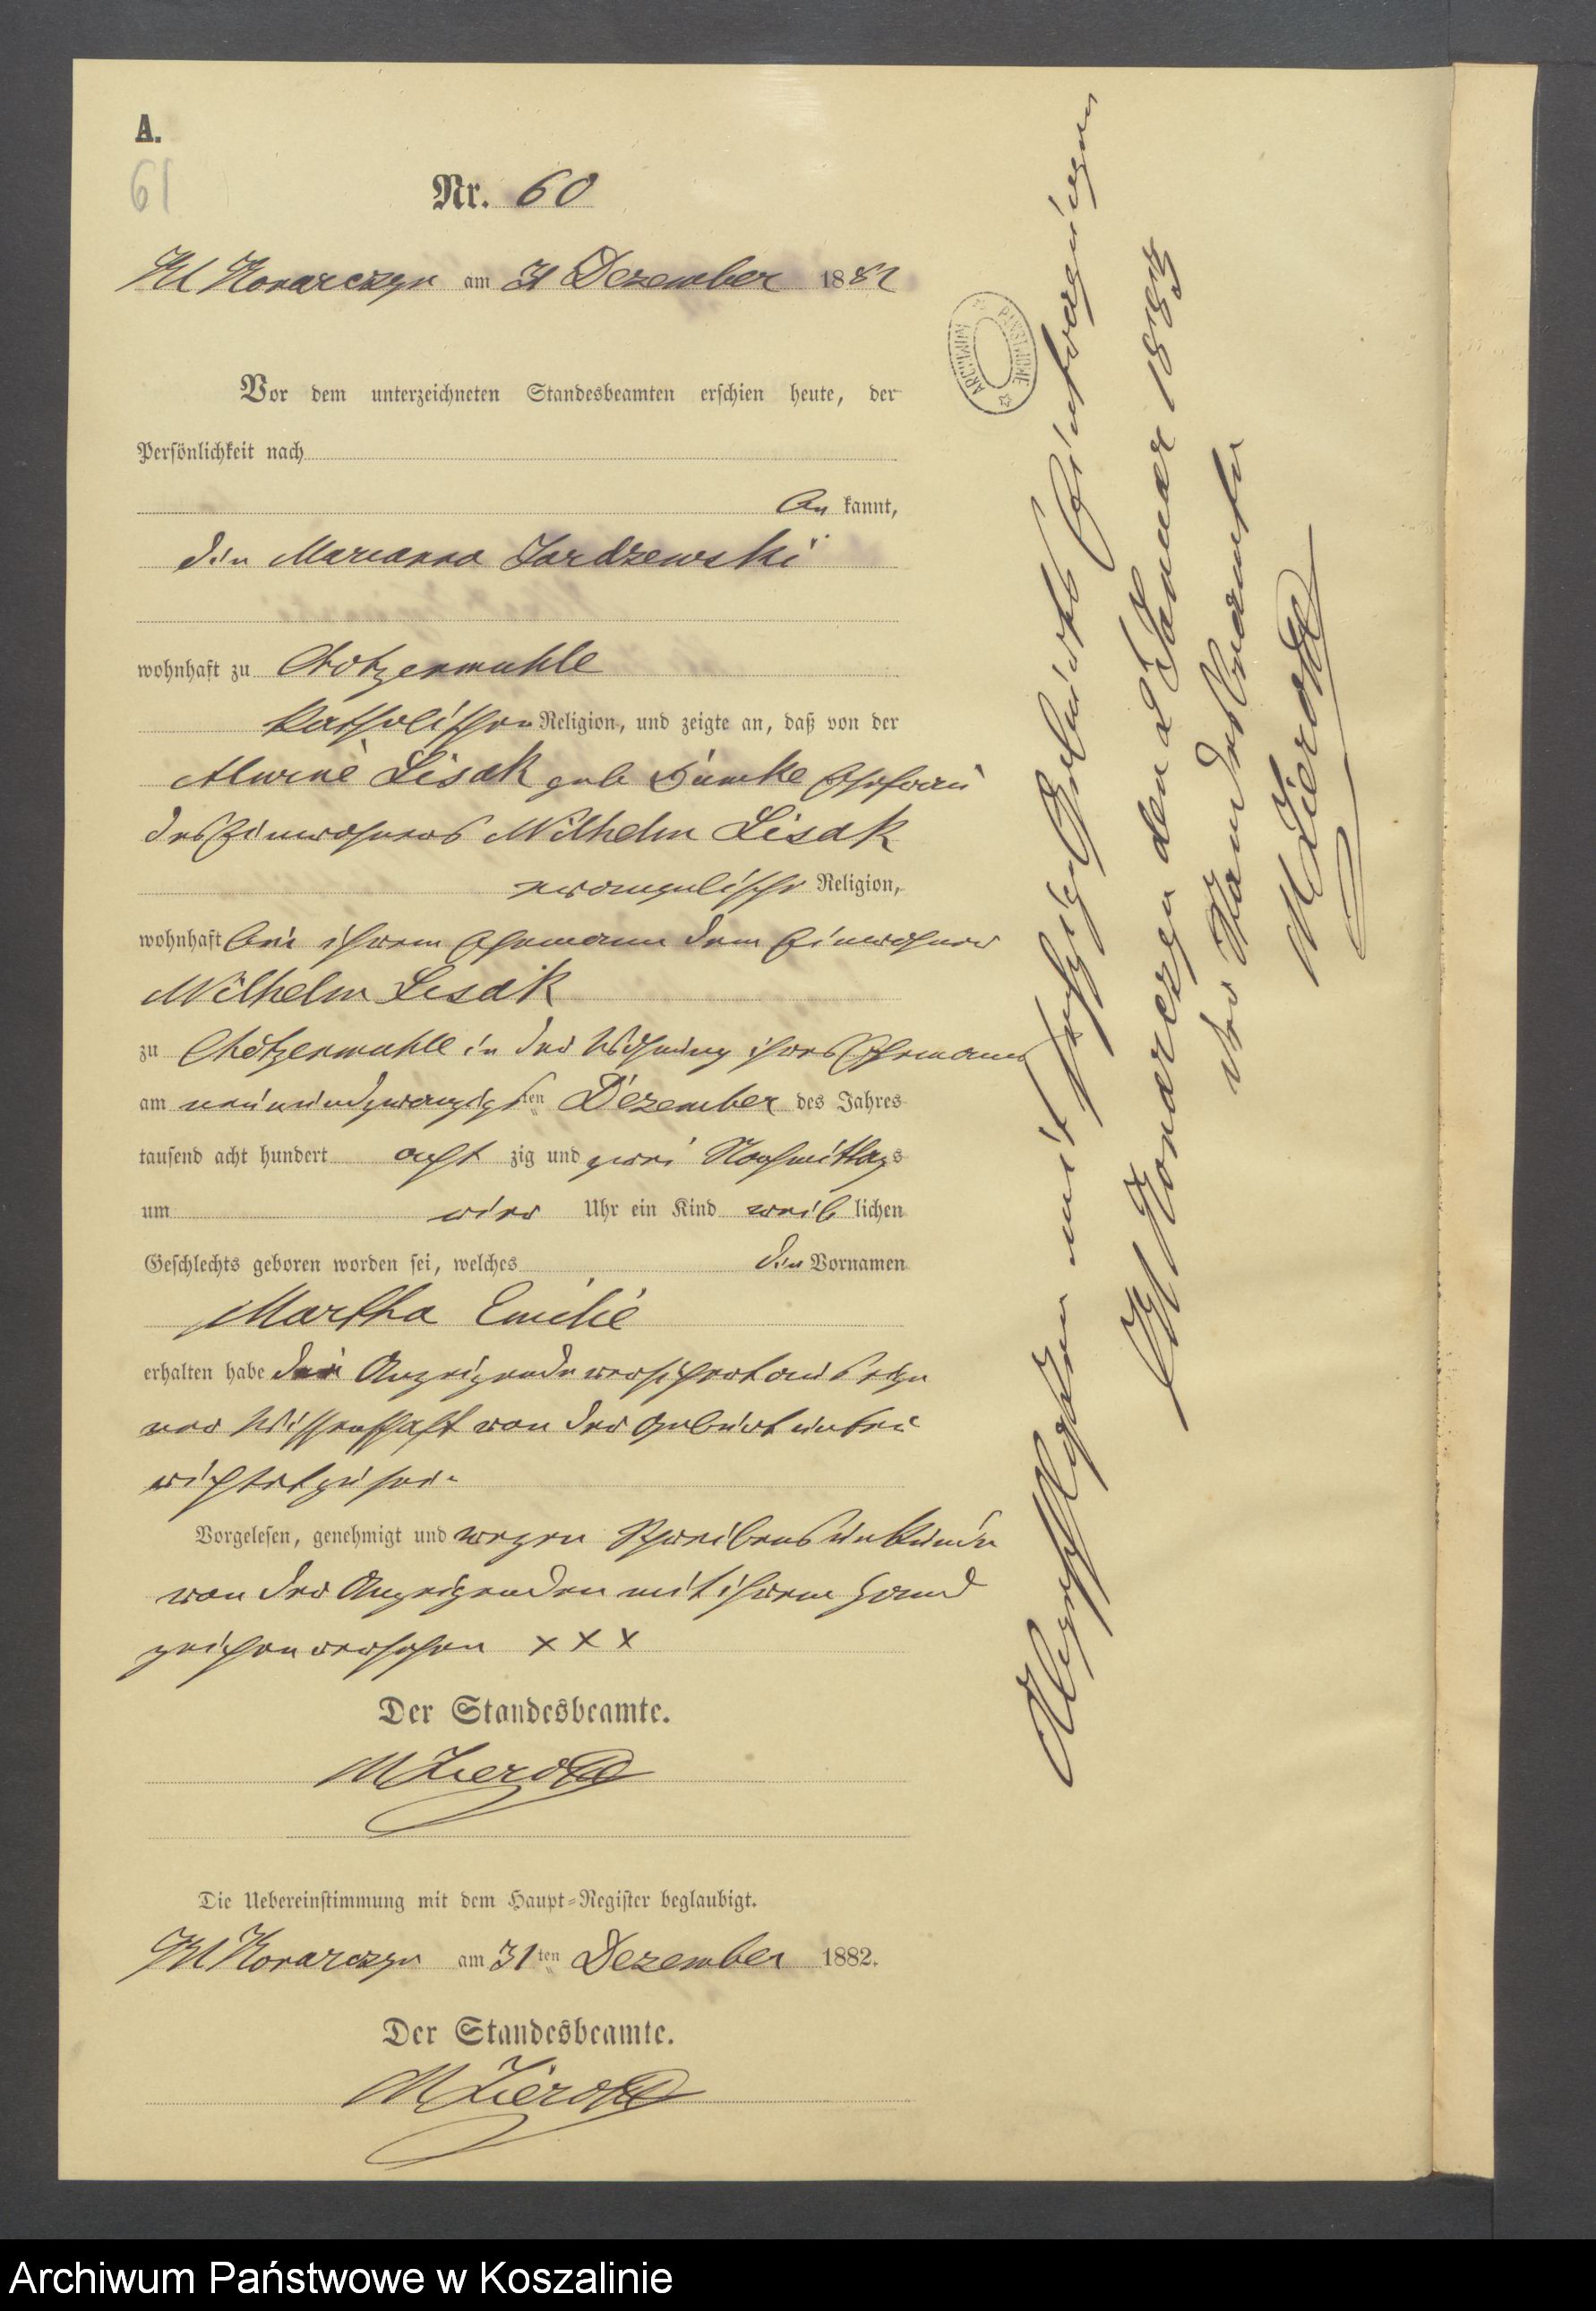 A.
61
Nr. 60
Kl Konarczyn am 31 Dezember 1882
Vor dem unterzeichneten Standesbeamten erschien heute, der
Persönlichkeit nach
be kannt,
die Marianna
wohnhaft zu Chotzenmühle
katholischen Religion, und zeigte an, daß von der
Lisak geb Ehefrau
des Einwohners Wilhelm Lisak
evangelischer Religion,
wohnhaft bei ihrem Ehemann dem Einwohner
Wilhelm Lisak
zu Chotzenmuhle in der Wohnung ihres Ehemanns
am neunundzwanzigsten Dezember des Jahres
tausend acht hundert acht zig und zwei Nachmittags
um vier Uhr ein Kind weib lichen
Geschlechts geboren worden sei, welches die Vornamen
Martha Emilie
erhalten habe die Anzeigende versichert aus eige
ner Wissenschaft von der Geburt unter
richtet zu sein
Vorgelesen, genehmigt und wegen Schreibensunkunde
von der Anzeigenden mit ihrem Hand
zeichen versehen x x x
Der Standesbeamte.
M
Die Uebereinstimmung mit dem Haupt-Register beglaubigt.
Kl Konarczyn am 31ten Dezember 1882.
Der Standesbeamte.
M
ARCHIWUM PAŃSTWOWE
Abgeschlossen mit sechzig Geburts Eintragungen
Kl Konarczyn den 2 Januar 1883
der Standesbeamte
M
Archiwum Państwowe w Koszalinie